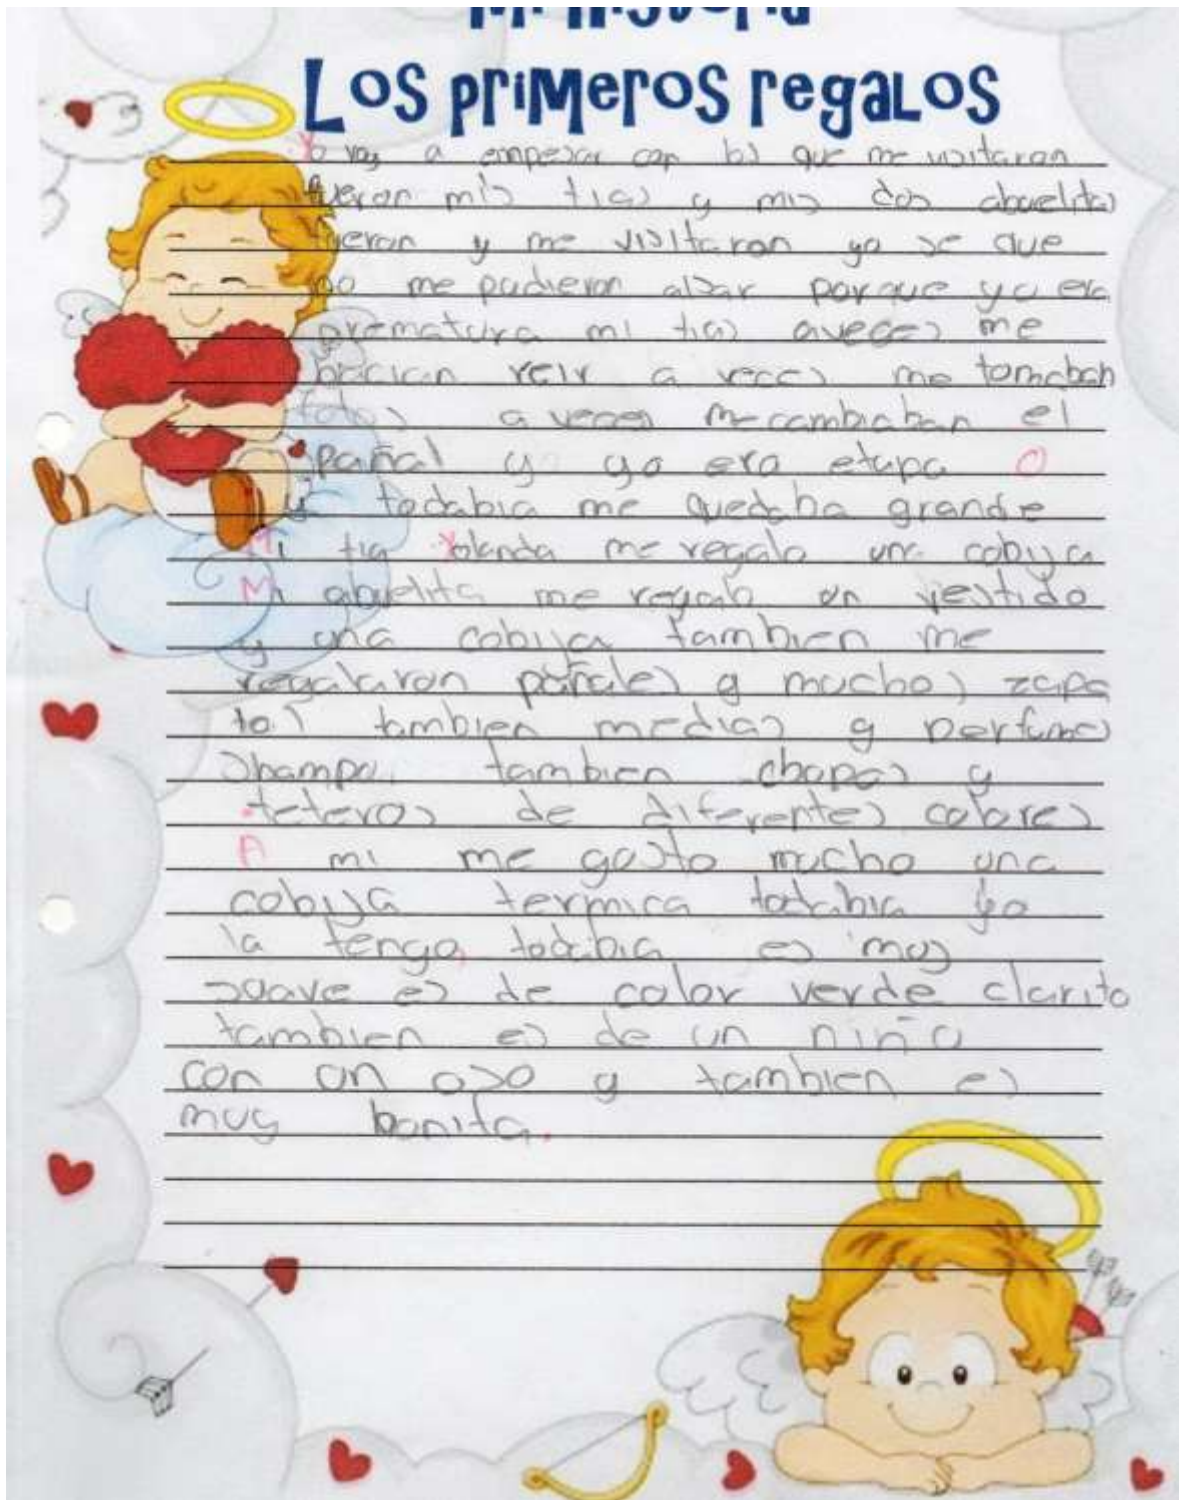 Mi historia
Los primeros regalos
Yo voy a empesar con los que me visitaron
fueron mis tias y mis dos abuelitas
fueron y me visitaron yo se que
no me pudieron alsar porque yo era
prematura mi tias aveces me
hacian reir a veces me tomaban
fotos a veces me cambiaban el
pañal y yo era etapa O
y todabia me quedaba grande
Mi tia Yolanda me regalo una cobija
Mi abuelita me regalo un vestido
y una cobija tambien me
regalaron pañales y muchos zapa
tos tambien medias y perfumes
shampu tambien chopos y
teteros de diferentes colores
A mi me gusto mucho una
cobija termica todabia yo
la tengo, todabia es muy
suave es de color verde clarito
tambien es de un niño
con un oso y tambien es
muy bonita.